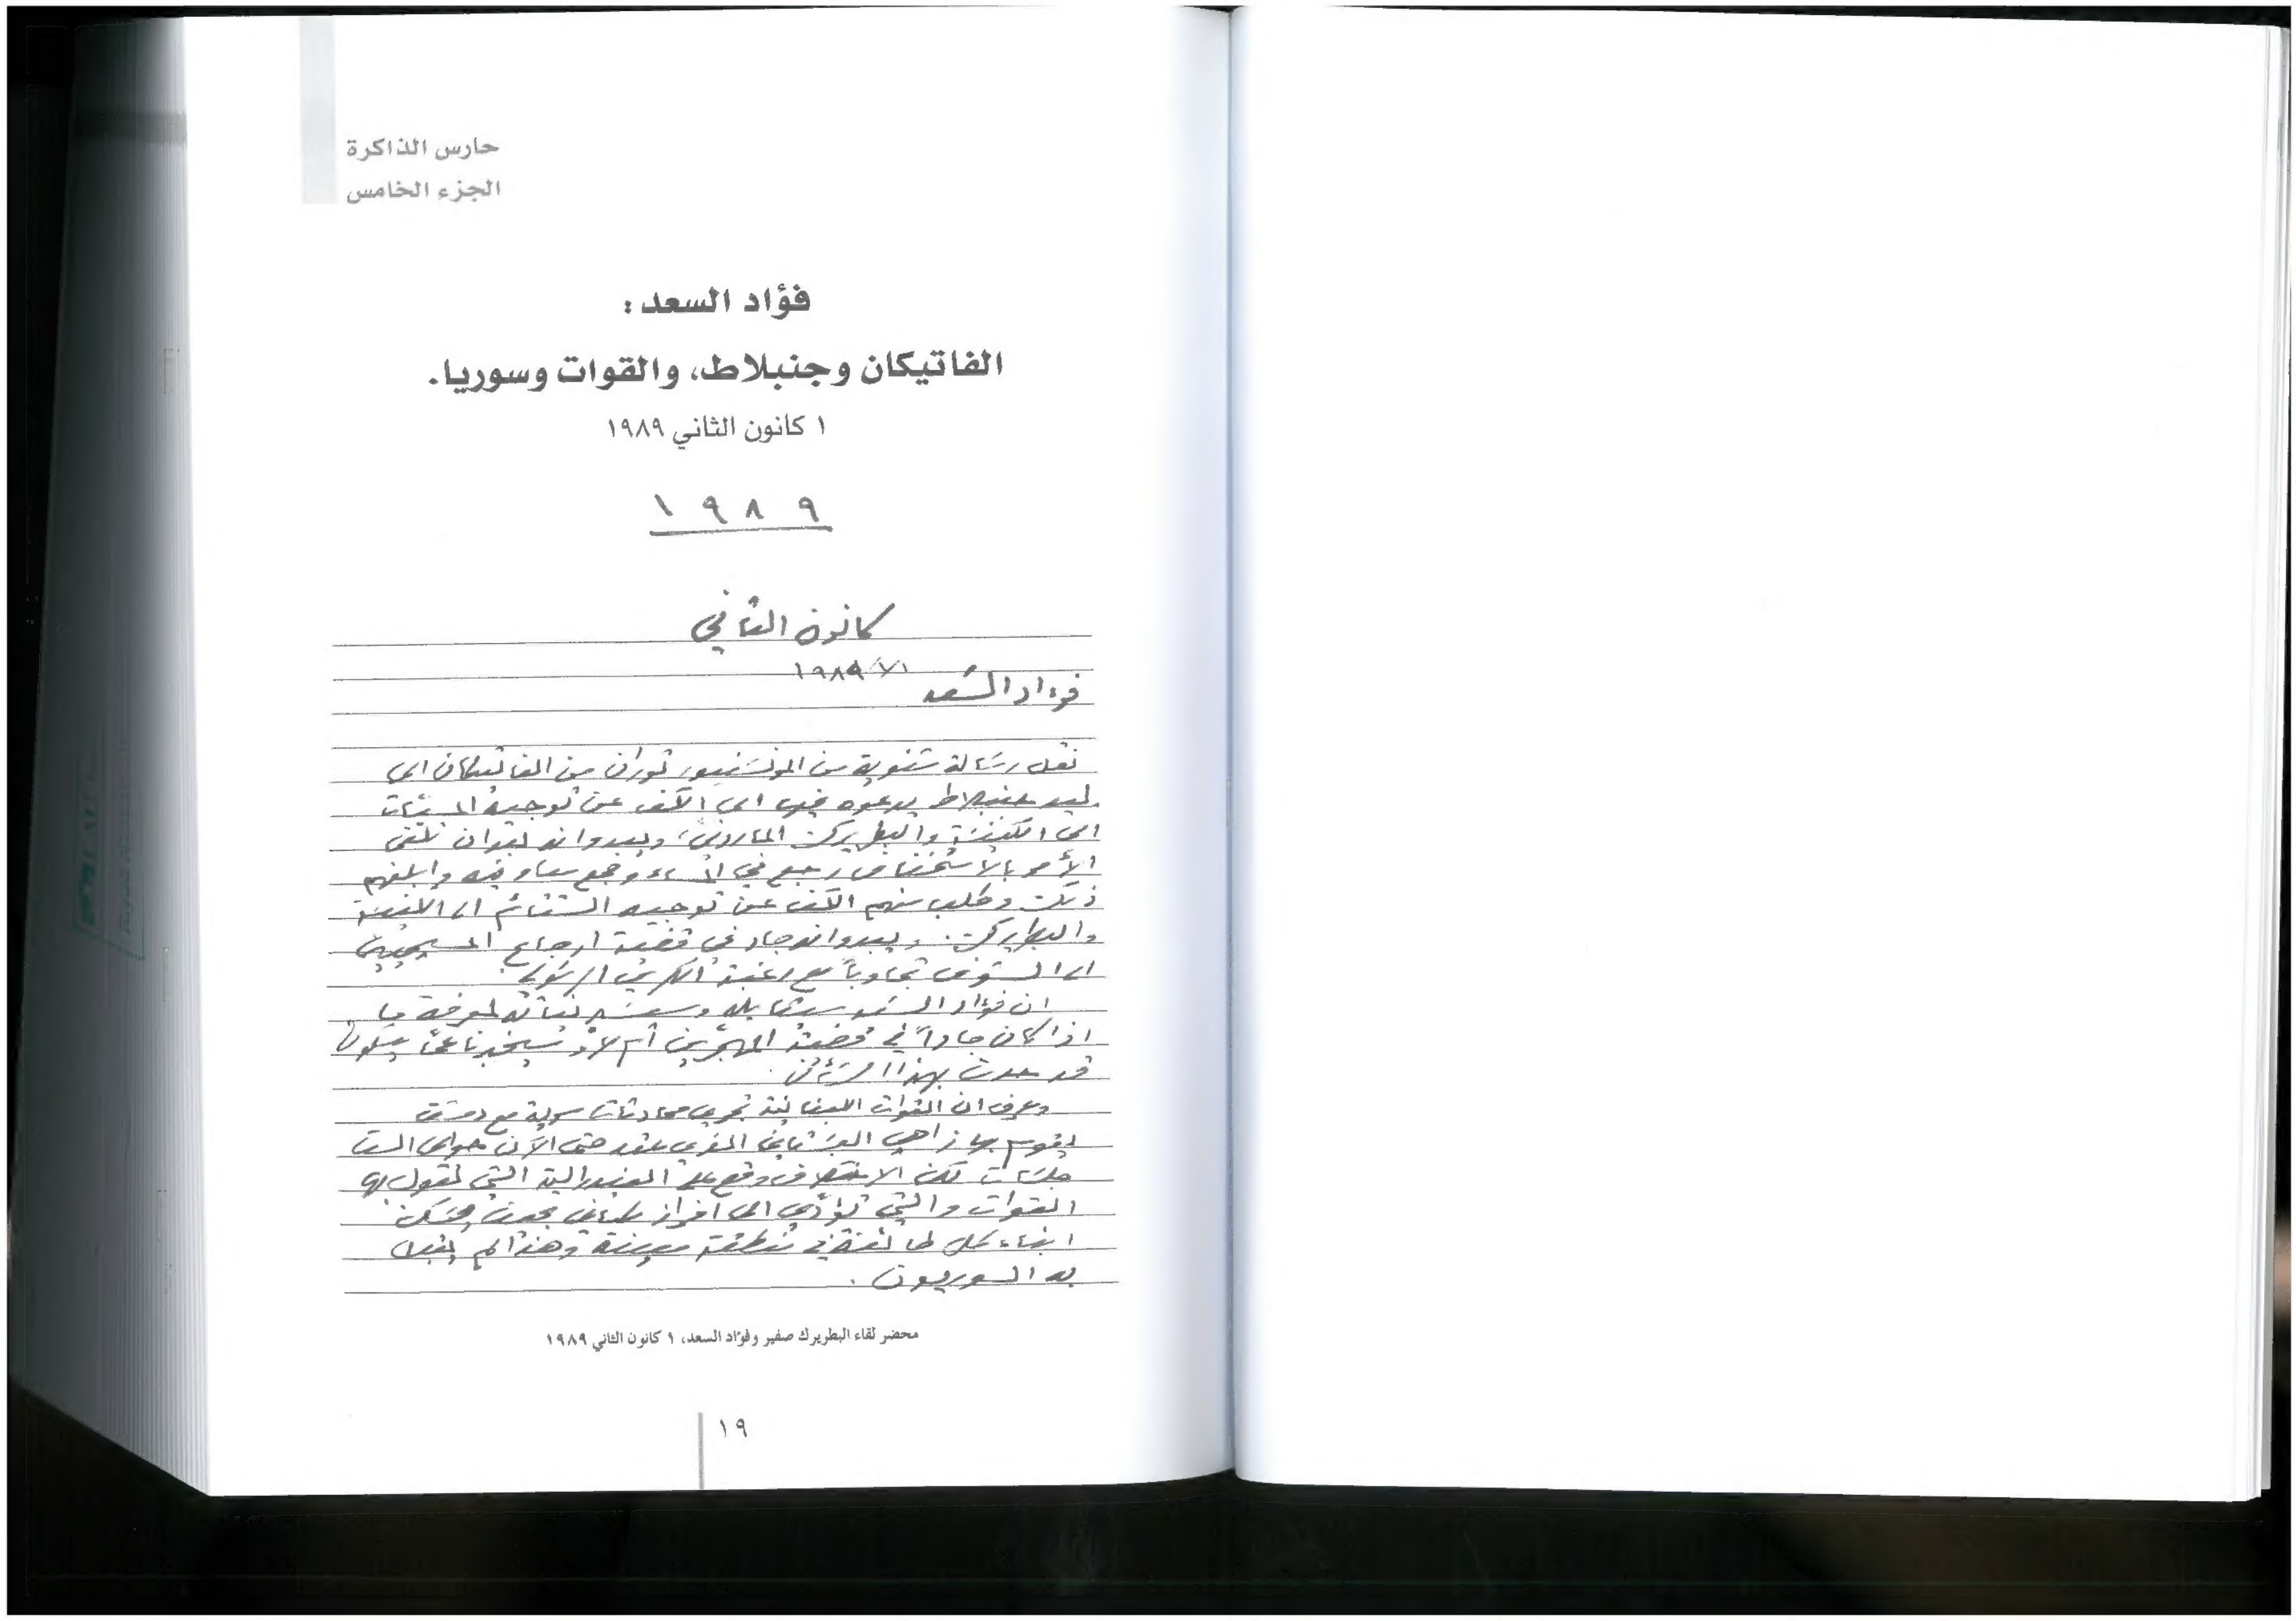 حارس الذاكرة
الجزء الخامس
فؤاد السعد :
الفاتيكان وجنبلاط، والقوات وسوريا.
١ كانون الثاني ١٩٨٩
١٩٨٩
كانون الثاني
١/١/١٩٨٩
فؤاد السعد
نقل رسالة شفوية من المونسنيور توران من الفاتيكان الى
وليد جنبلاط يدعوه فيها الى الكف عن توجيه السباب
الى الكنيسة والبطريرك الماروني، ويبدو انه بعد ان تلقى
الأمر بالاستخفاف رجع في المساء وجمع معاونيه وابلغهم
ذلك وطلب منهم الكف عن توجيه الشتائم الى الكنيسة
والبطريرك. ويبدو انه جاد في قضية ارجاع المسيحيين
الى الشوف تجاوباً مع رغبة الكرسي الرسولي.
ان فؤاد السعد سيقابله وسيسبر نياته لمعرفة ما
اذا كان جاداً في قضية المهجرين أم لا وسيخبرنا عما يكون
قد حدث بهذا الشأن.
وعرف ان القوات اللبنانية تجري محادثات سرية مع دمشق
يقوم بها زاهي البستاني الذي عقد حتى الآن حوالى الست
جلسات لكن الاختلاف وقع على الفيدرالية التي تقول بها
القوات والتي تؤدي الى افراز طائفي بحيث يسكن
ابناء كل طائفة في منطقة معينة وهذا لم يقبل
به السوريون.
محضر لقاء البطريرك صفير وفؤاد السعد، ١ كانون الثاني ١٩٨٩
١٩